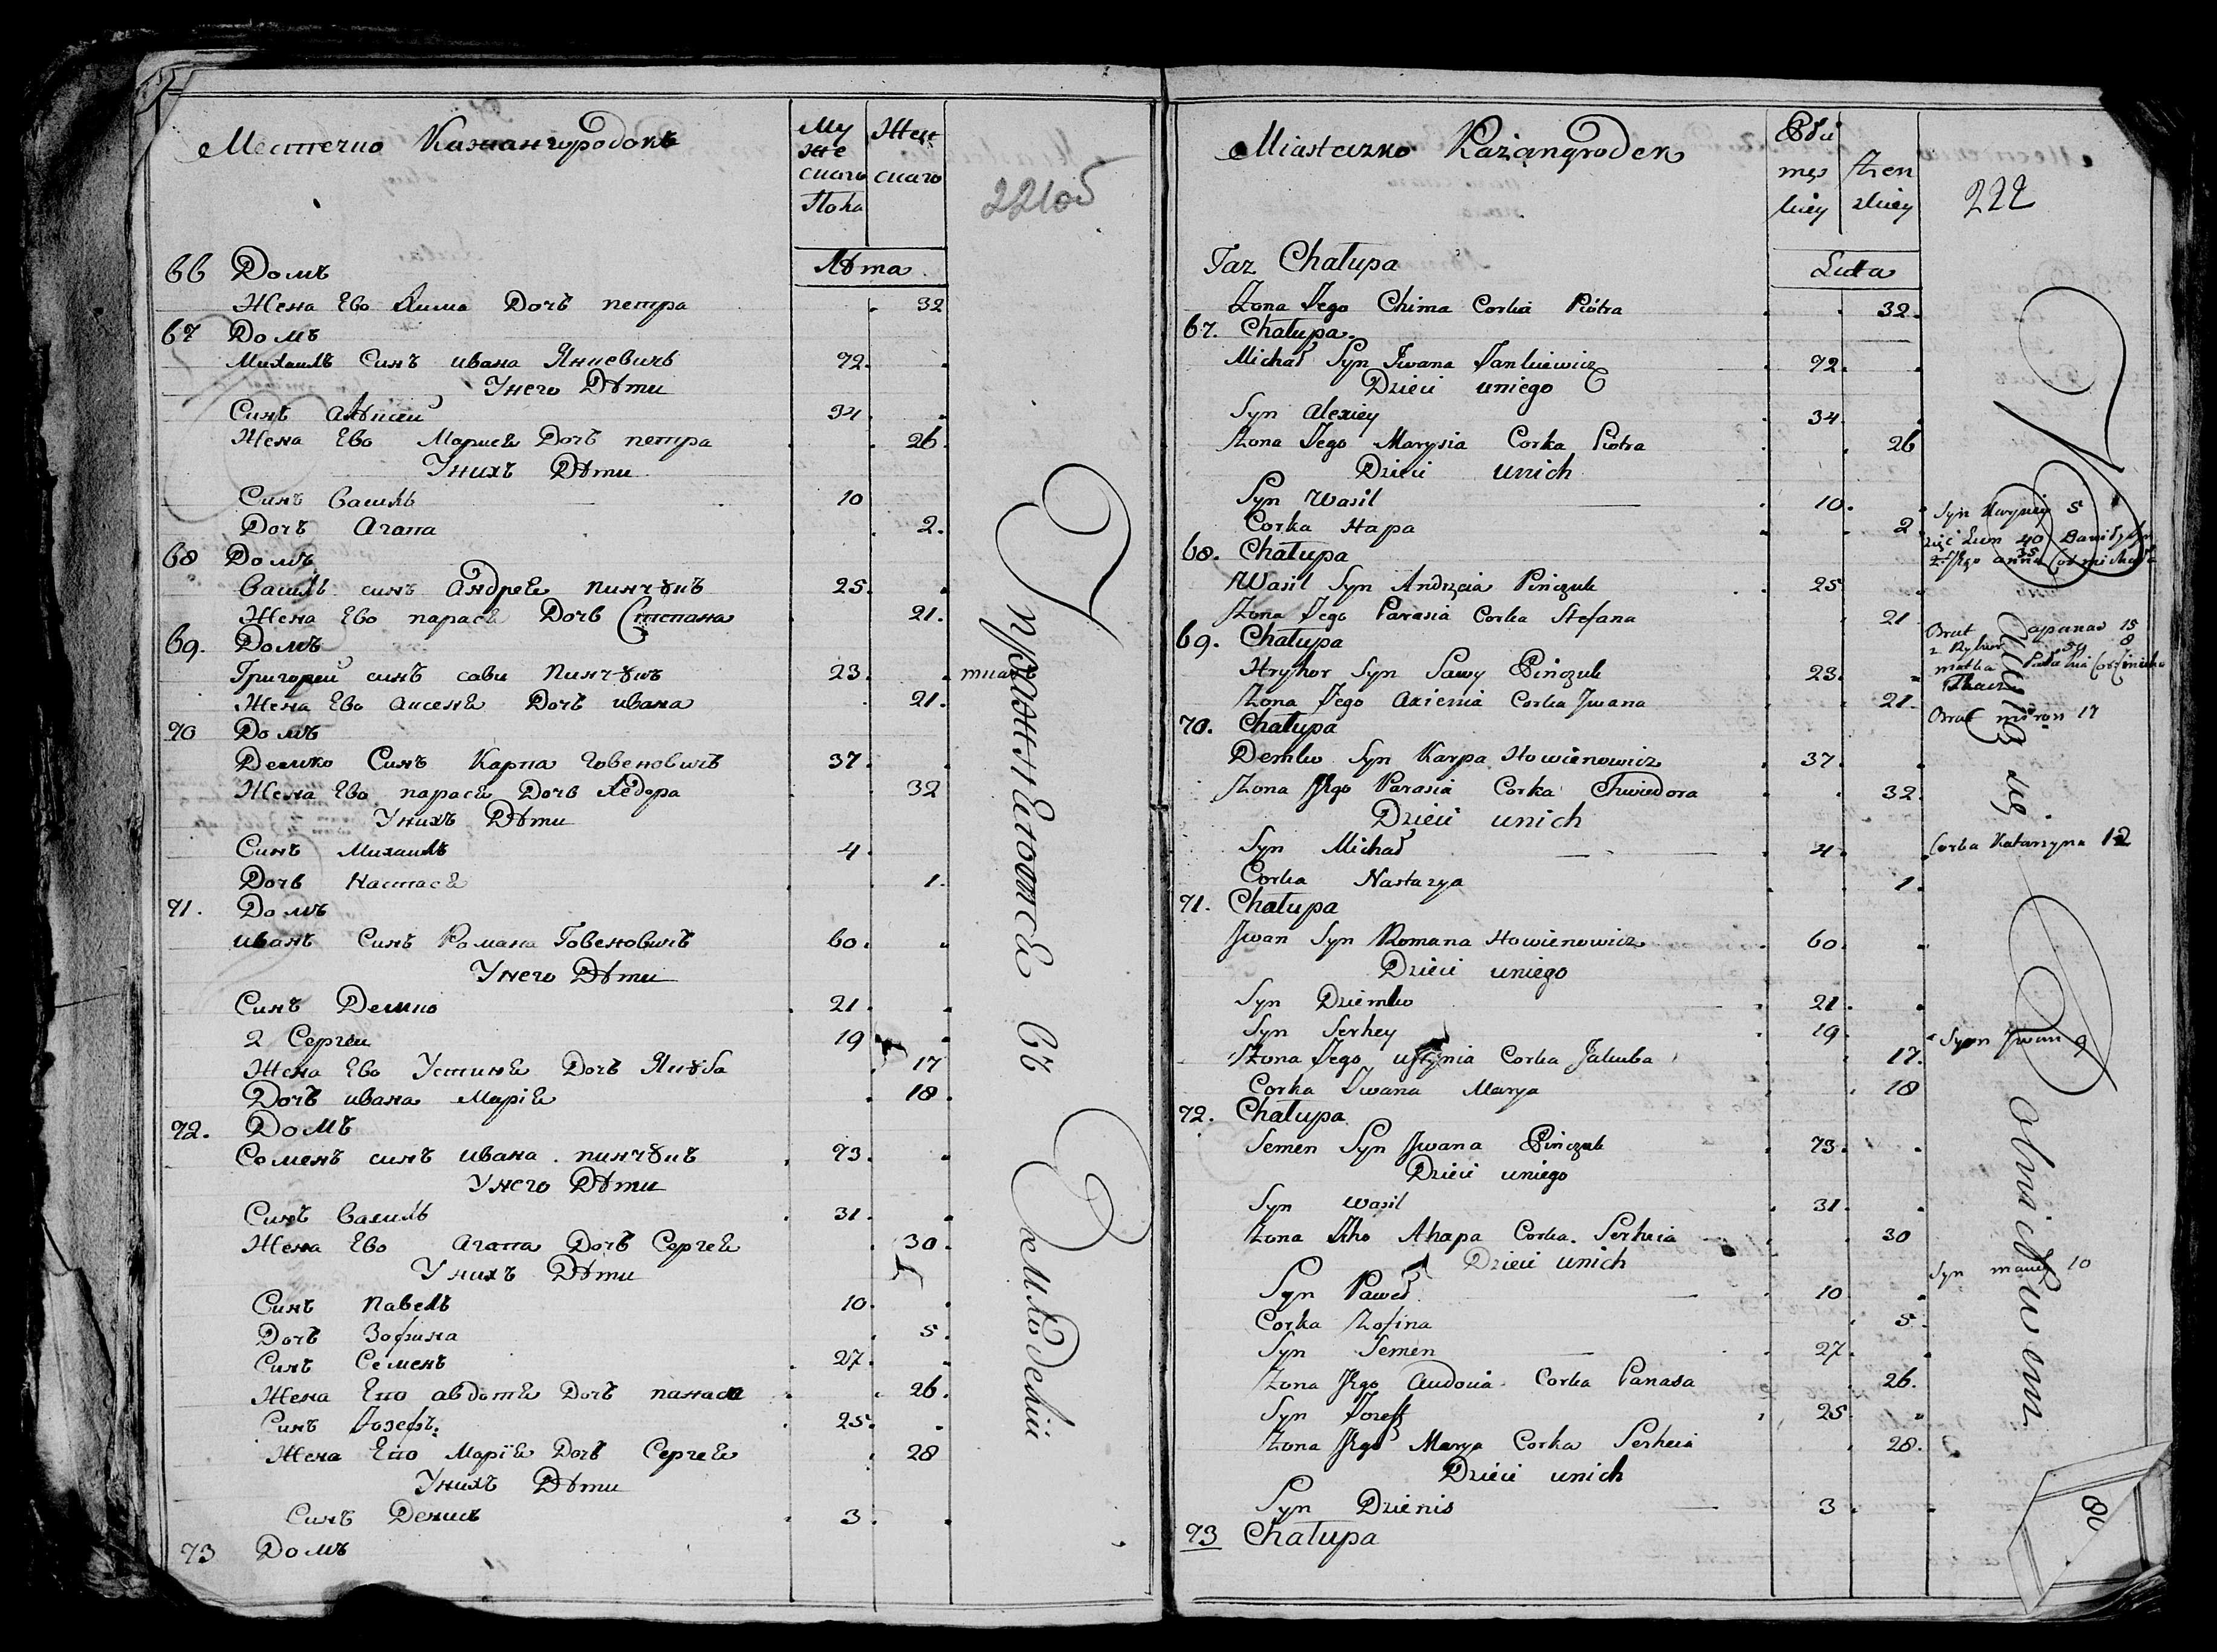 Местечко Кажангородокъ
Му
же
скаго
Пола
Жен
скаго
221об
Лѣта
66 Домъ
Жена Ево Химa Дочь петра 32
67 Домъ
Михаилъ Синъ ивана Янкевичъ 72
Унего Дѣти
Синъ Алѣксей 34
Жена Ево Марися Дочь петра 26
Унихъ Дѣти
Синъ Василь 10
Дочь Агапа 2
68 Домъ
Василь синъ Андрея пинчукъ 25
Жена Ево парася Дочь Степана 21
69. Домъ
Григорей синъ сави Пинчукъ 23
Жена Ево аксеня Дочь ивана 21
70 Домъ
Демко Синъ Карпа Говеновичъ 37
Жена Ево парася Дочь Хведора 32
Унихъ Дѣти
Синъ Михаилъ 4
Дочь Настася 1
71. Домъ
иванъ Синъ Романа Говеновичъ 60
Унего Дѣти
Синъ Демко 21
2 Сергей 19
Жена Ево Устиня Дочь Якуба 17
Дочь ивана Марія 18
72. Домъ
Семенъ синъ ивана пинчукъ 73
Унего Дѣти
Синъ Василь 31
Жена Ево Агапа Дочь Сергея 30
Унихъ Дѣти
Синъ Павелъ 10
Дочь Зофина 5
Синъ Семенъ 27
Жена Его авдотя Дочь панаса 26
Синъ Іозефъ 25
Жена Его Марія Дочь Сергея 28
Унихъ Дѣти
Синъ Денисъ 3
73 Домъ
Miasteczko Każangrodek
Płci
męs
kiey
Żen
skiey
222
Lata
Taz Chałupa
Żona Jego Chima Corka Piotra 32
67. Chałupa
Michał Syn Jwana Jankiewicz 72
Dzieci uniego
Syn Alexiey 34
Żona Jego Marysia Corka Piotra 26
Dzieci unich
Syn Wasil 10
Corka Hapa 2
68. Chałupa
Wasil Syn Andrzeia Pińczuk 25
Żona Jego Parasia Corka Stefana 21
69. Chałupa
Hryhor Syn Sawy Pińczuk 23
Żona Jego Axienia Corka Jwana 21
70. Chałupa
Demko Syn Karpa Howienowicz 37
Żona Jego Parasia Corka Chwiedora 32
Dzieci unich
Syn Michał 4
Corka Nastazya 1
71. Chałupa
Jwan Syn Romana Howienowicz 60
Dzieci uniego
Syn Dziemko 21
Syn Serhey 19
Żona Jego Ustynia Corka Jakuba 17
Corka Jwana Marya 18
72. Chałupa
Semen Syn Jwana Pińczuk 73
Dzieci uniego
Syn Wasil 31
Żona Jeho Ahapa Corka Serheia 30
Dzieci unich
Syn Paweł 10
Corka Zofina 5
Syn Semen 27
Żona Jego Audocia Corka Panasa 26
Syn Jozeff 25
Żona Jego Marya Corka Serheia 28
Dzieci unich
Syn Dzienis 3
73 Chałupa
Brat apanas 15
Brat miron 17
Corka Katarzyna 12
Syn Jwan 9
Syn 10
80